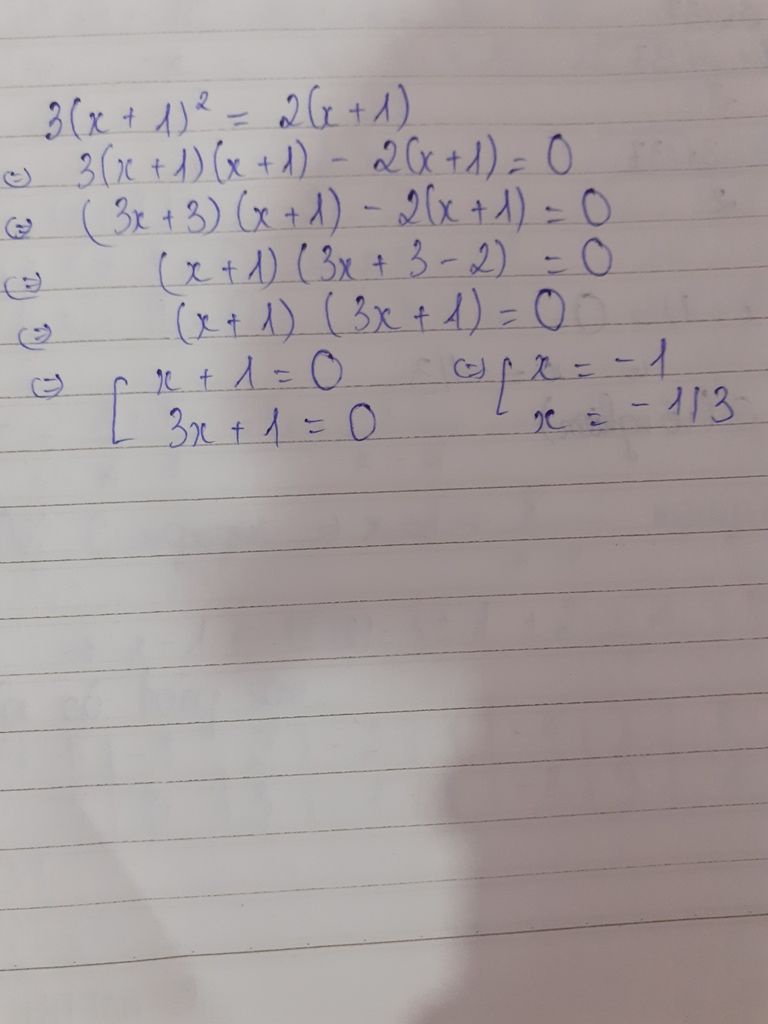 3(x + 1)² = 2(x + 1)
⇔ 3(x + 1)(x + 1) - 2(x + 1) = 0
⇔ (3x + 3)(x + 1) - 2(x + 1) = 0
⇔ (x + 1)(3x + 3 - 2) = 0
⇔ (x + 1)(3x + 1) = 0
⇔ [ x + 1 = 0 ⇔ [ x = -1
3x + 1 = 0 x = -1/3